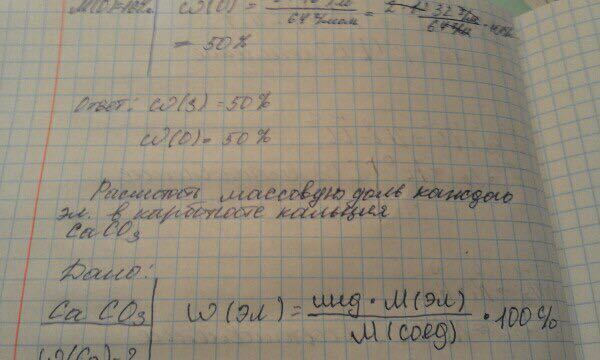 ω(O) =
64 г/моль
= 50%
Ответ: ω(S) = 50%
ω(O) = 50%
Расчитать массовую доль каждого
эл. в карбонате кальция
CaCO₃
Дано:
CaCO₃ | ω(эл) = инд · M(эл) / M(соед) · 100%
ω(Ca) - ?